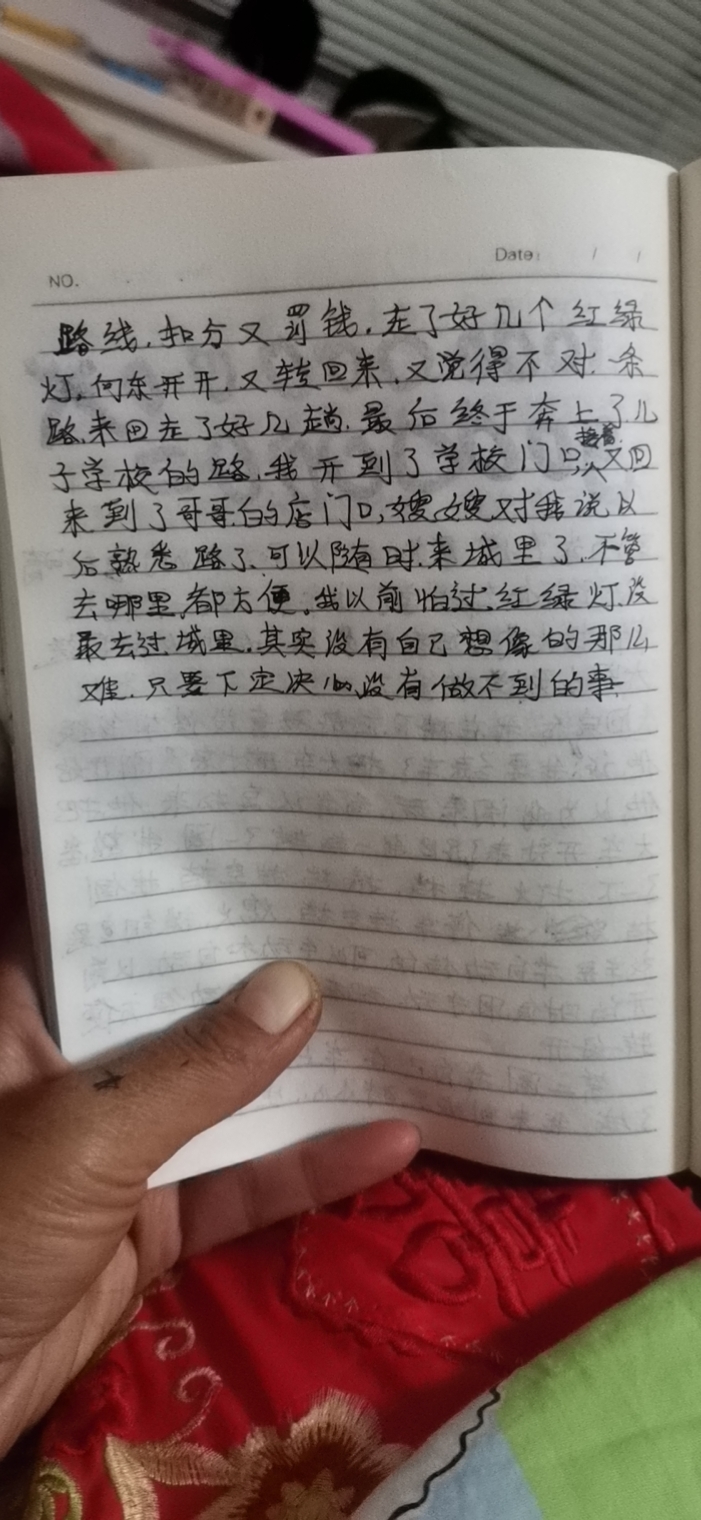 NO.
Date: / /
路线.扣分又罚钱.走了好几个红绿
灯.向东开开.又转回来.又觉得不对.一条
路.来回走了好几趟.最后终于奔上了儿
子学校的路.我开到了学校门口,接着又回
来到了哥哥的店门口,嫂嫂对我说以
后熟悉路了.可以随时.来城里了.不管
去哪里.都方便.我以前怕过.红绿灯.没
敢去过城里.其实没有自己想像的那么
难.只要下定决心.没有做不到的事